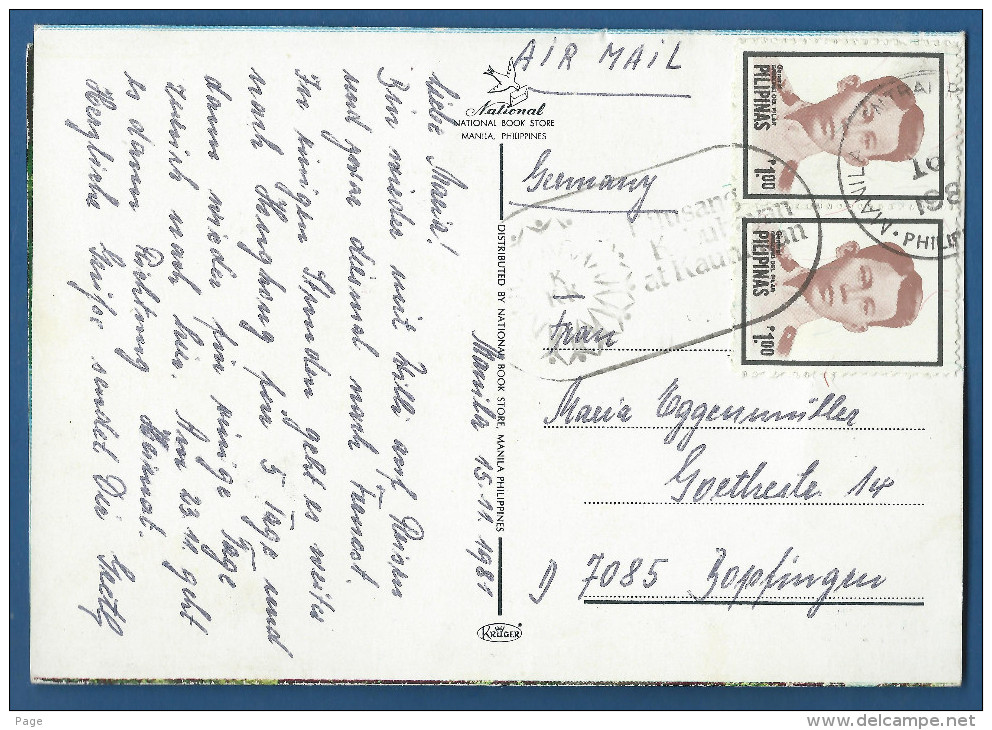 AIR MAIL
National
NATIONAL BOOK STORE
MANILA, PHILIPPINES
Germany
Manila 15.11.1981
Liebe Maria!
Bin wieder mit Willi auf Reisen
und zwar diesmal nach Fernost.
In einigen Stunden geht es weiter
nach Hongkong für 5 Tage und
dann wieder für einige Tage
zurück nach hier. Am 23.11 geht
es dann Richtung Heimat.
Herzliche Grüße sendet Dir
Frau
Maria Eggenmüller
Goethestr. 14
D 7085 Bopfingen
DISTRIBUTED BY NATIONAL BOOK STORE, MANILA PHILIPPINES
KRÜGER
PILIPINAS
P1.00
PILIPINAS
P1.00
MANILA
PHILIP
16
198
at Kaunlaran
Page
www.delcampe.net